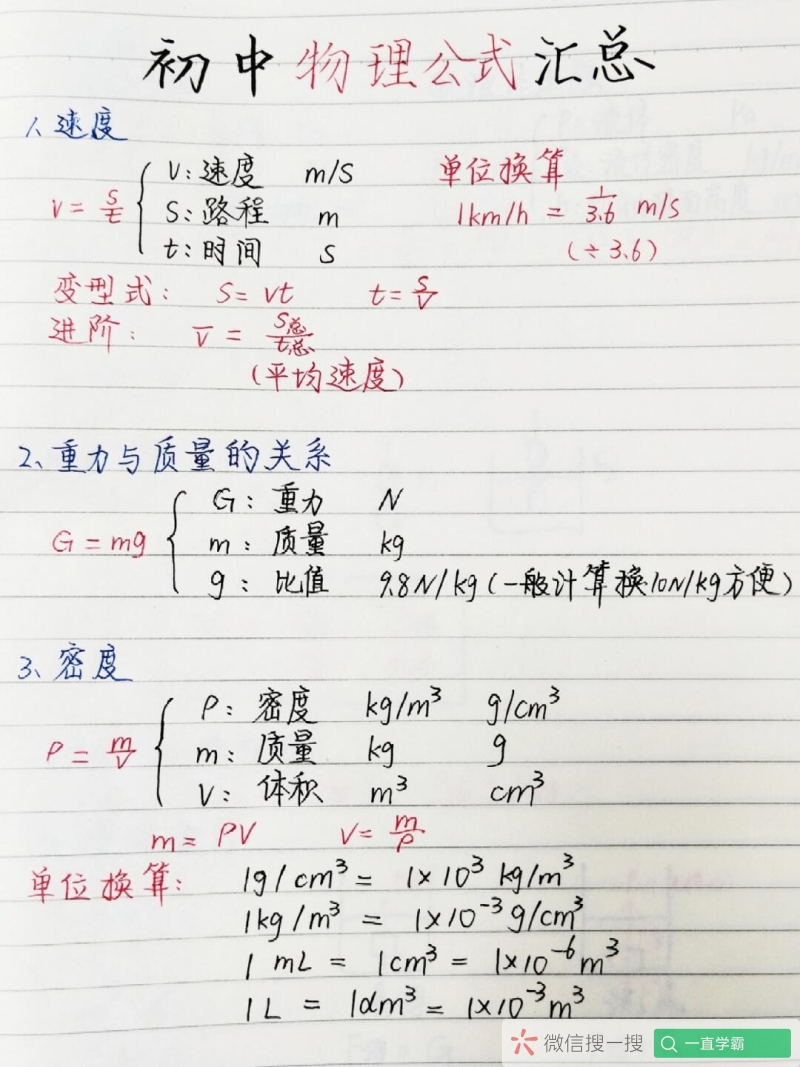 初中物理公式汇总
1、速度
v = s/t { V: 速度 m/s 单位换算
S: 路程 m 1km/h = 1/3.6 m/s
t: 时间 S (÷3.6)
变型式: S = vt t = s/v
进阶: v̄ = S总/t总
(平均速度)
2、重力与质量的关系
G = mg { G: 重力 N
m: 质量 kg
g: 比值 9.8N/kg (一般计算换10N/kg方便)
3、密度
ρ = m/V { ρ: 密度 kg/m³ g/cm³
m: 质量 kg g
V: 体积 m³ cm³
m = ρV V = m/ρ
单位换算: 1g/cm³ = 1×10³ kg/m³
1kg/m³ = 1×10⁻³ g/cm³
1 mL = 1cm³ = 1×10⁻⁶ m³
1L = 1dm³ = 1×10⁻³ m³
微信搜一搜 一直学霸